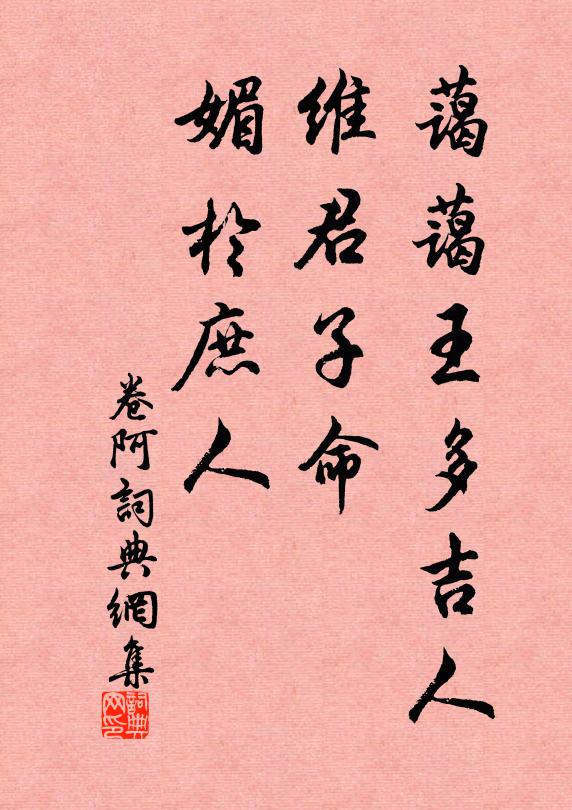 藹藹王多吉人
維君子命
媚於庶人
卷阿詞典網集
詞典网印